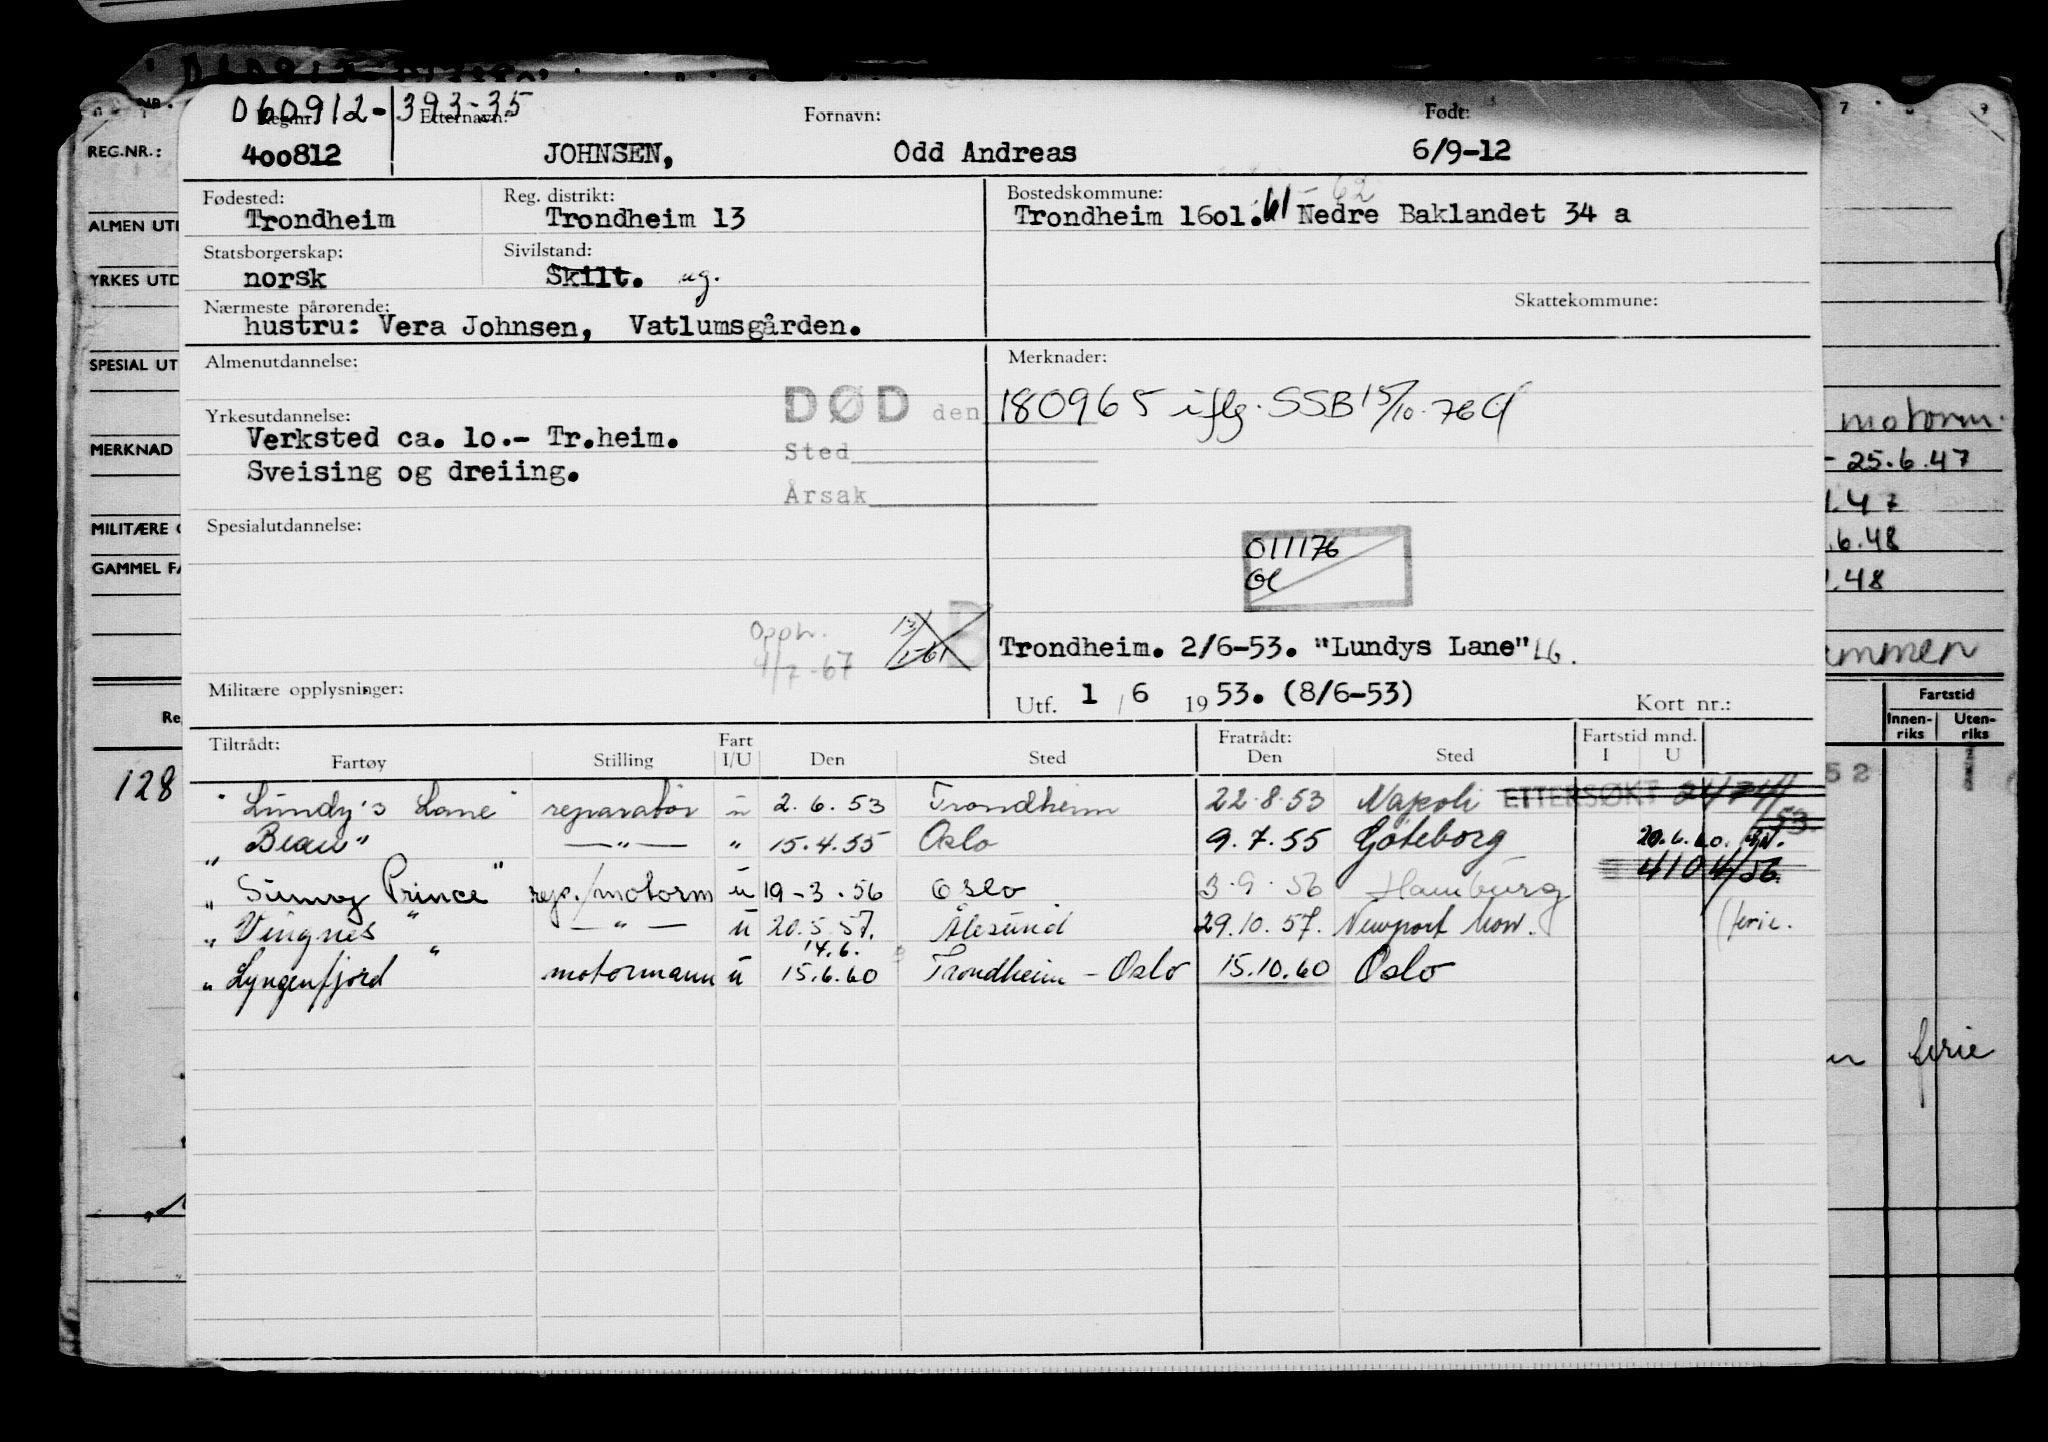 060912-39335
Regnr.: Etternavn: Fornavn: Født:
400812 JOHNSEN, Odd Andreas 6/9-12
Fødested: Reg. distrikt: Bostedskommune:
Trondheim Trondheim 13 Trondheim 16ol. 61 - 62 Nedre Baklandet 34 a
Statsborgerskap: Sivilstand:
norsk Skilt. ug.
Nærmeste pårørende: Skattekommune:
hustru: Vera Johnsen, Vatlumsgården.
Almenutdannelse: Merknader:
DØD den 180965 iflg. SSB 15/10-76
Yrkesutdannelse:
Verksted ca. 1o.- Tr.heim.
Sted
Sveising og dreiing.
Årsak
Spesialutdannelse:
011176
B
Opph. 4/7-67
Trondheim. 2/6-53. "Lundys Lane" LG.
Militære opplysninger:
Utf. 1 / 6 19 53. (8/6-53) Kort nr.:
Tiltrådt: Fart Fratrådt: Fartstid mnd.
Fartøy Stilling I/U Den Sted Den Sted I U
"Lundy's Lane" reparatør u 2.6.53 Trondheim 22.8.53 Napoli ETTERSØKT
53.
" Beau" —"— " 15.4.55 Oslo 9.7.55 Göteborg 20.6.60.
" Sunny Prince" rep./motorm u 19-3.56 Oslo 3.9.56 Hamburg
" Vingnes" —"— u 20.5.57. Ålesund 29.10.57. Newport Mon. (ferie.
14.6.
" Lyngenfjord" motormann u 15.6.60 Trondheim - Oslo 15.10.60 Oslo
REG.NR.:
ALMEN UTD
YRKES UTD
SPESIAL UT
MERKNAD
MILITÆRE O
GAMMEL FA
128
7
motorm.
- 25.6.47
.6.48
.48
Fartstid
Innen-riks Uten-riks
52
ferie